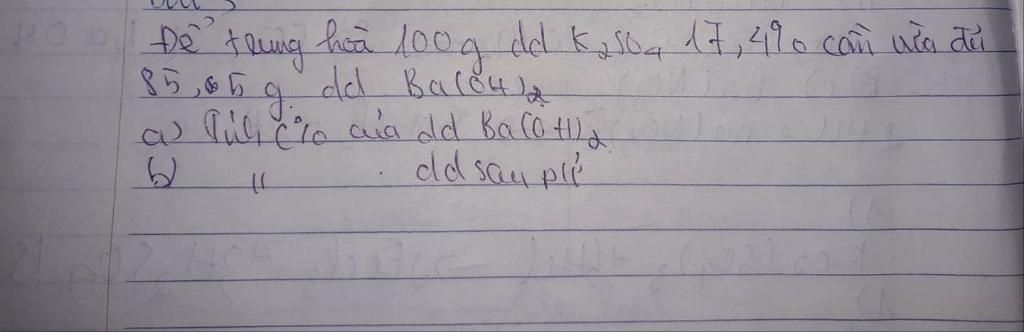 Để trung hoà 100g dd K₂SO₄ 17,4% cần vừa đủ
85,5g dd Ba(OH)₂
a) Tính C% của dd Ba(OH)₂
b) " dd sau pư